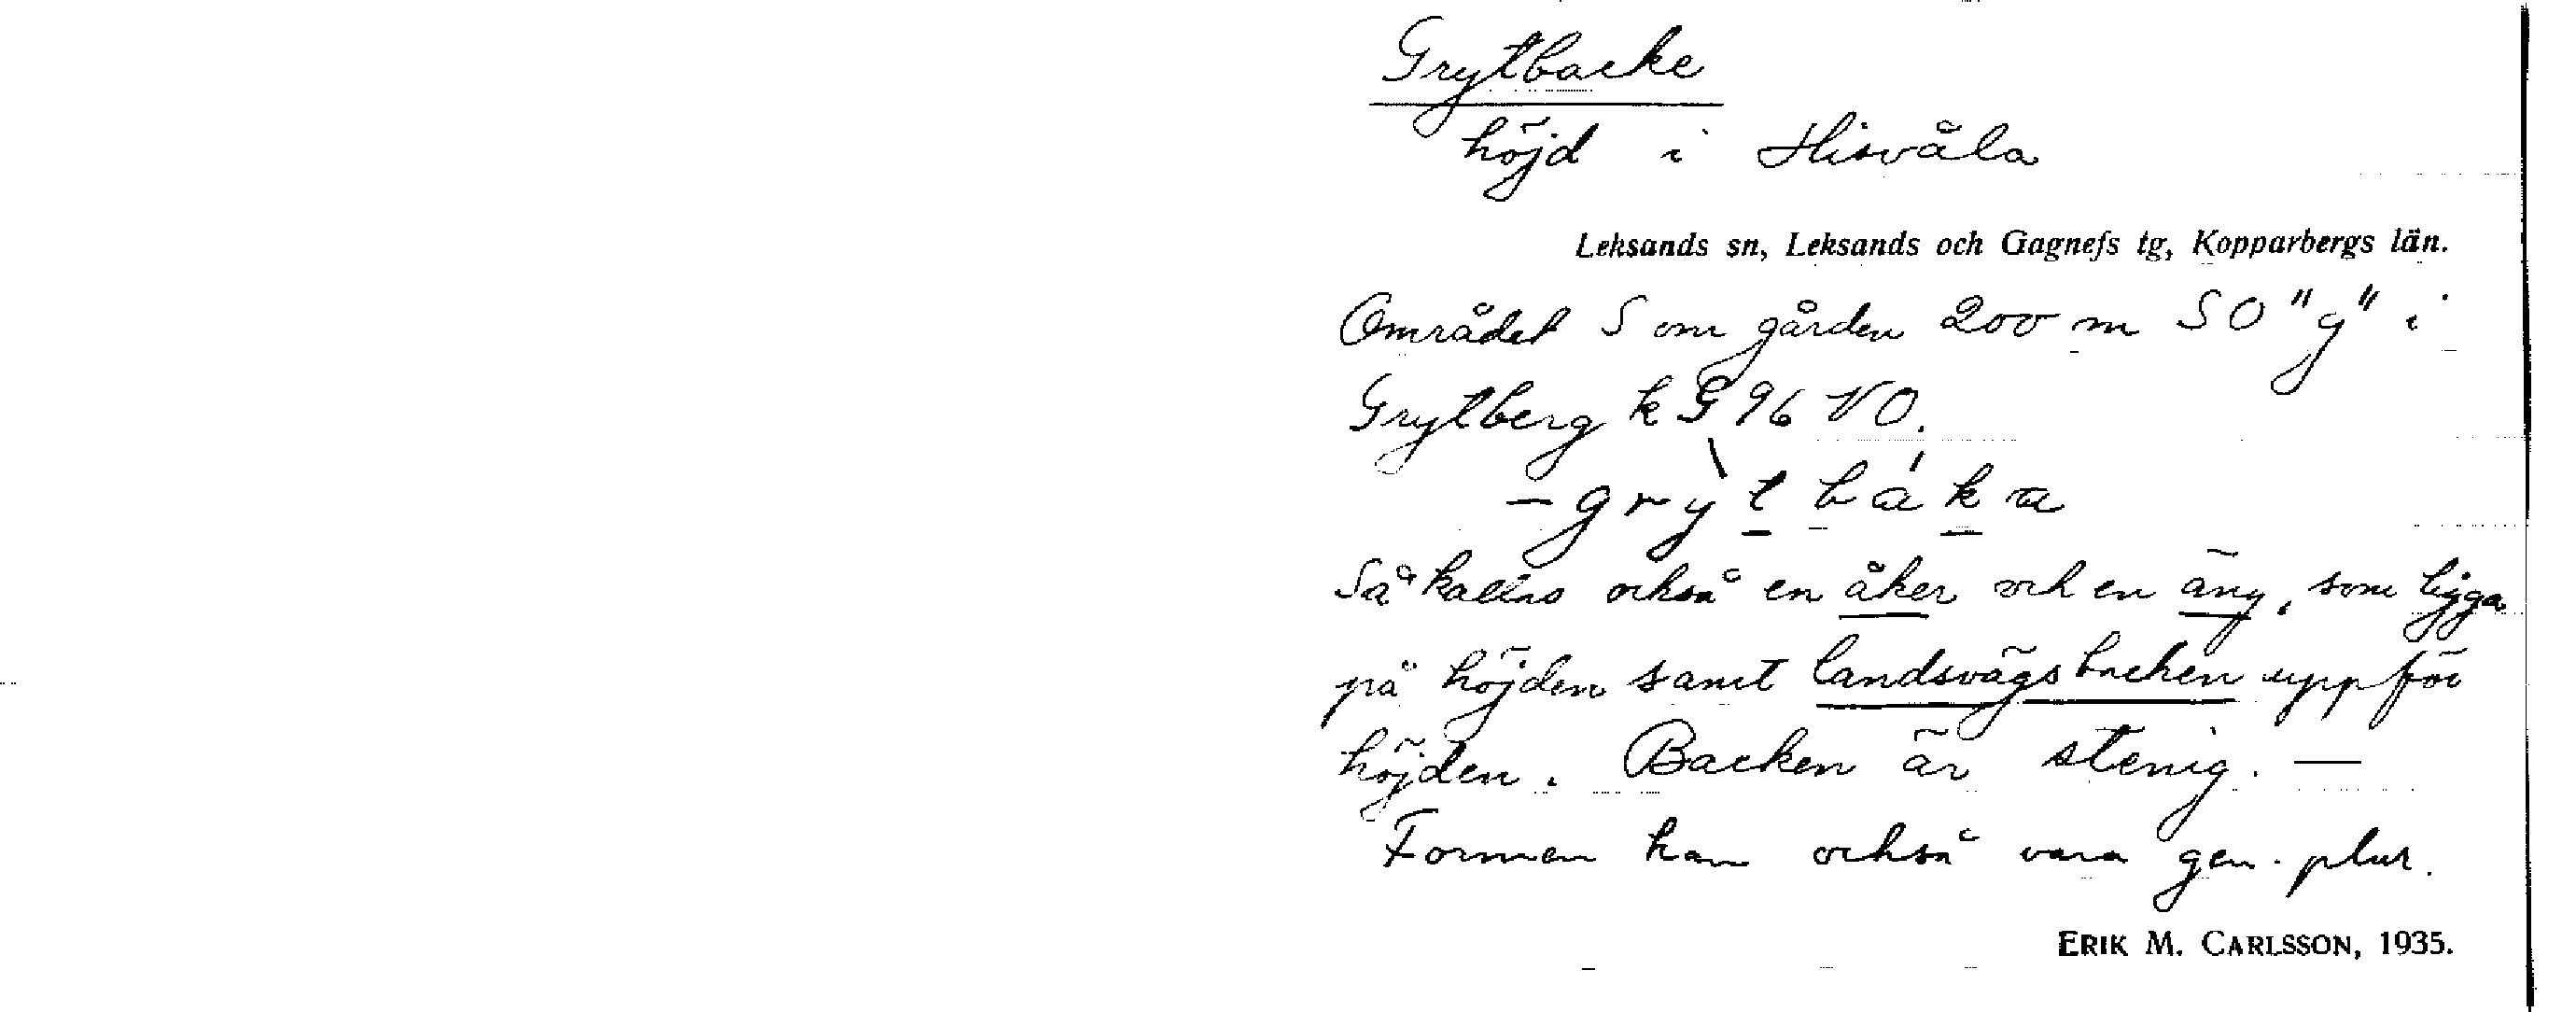 Grytbacke
höjd i Hisvåla
Leksands sn, Leksands och Gagnefs tg, Kopparbergs län.
Området S om gården 200 m SO "g" i
Grytberg k G 96 NO.
– grỳt bák a
Så kallas också en åker och en äng, som ligga
på höjden samt landsvägsbacken uppför
höjden. Backen är stenig. —
Formen kan också vara gen. plur.
ERIK M. CARLSSON, 1935.